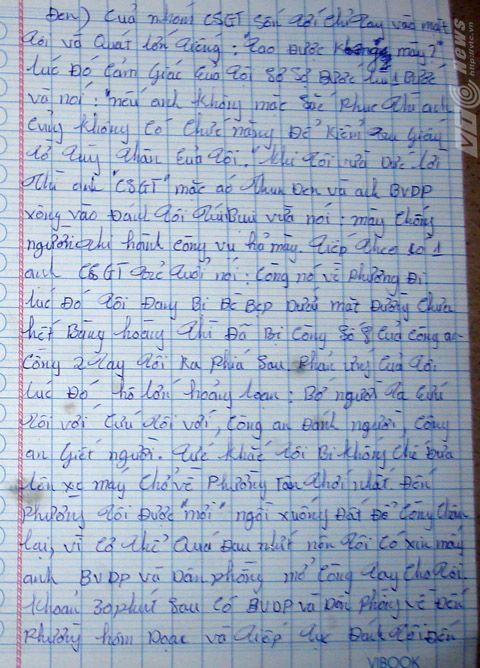 Đen) Của nhóm CSGT sấn tới chỉ tay vào mặt
tôi và quát lớn tiếng: "tao được không mày?"
lúc đó cảm giác của tôi sợ sợ được lùi 1 bước
và nói: "nếu anh không mặc sắc phục thì anh
cũng không có chức năng để kiểm tra giấy
tờ tùy thân của tôi." Khi tôi vừa dứt lời
thì anh "CSGT" mặc áo thun đen và anh BVDP
xông vào đánh tôi túi bụi vừa nói: mày chống
người thi hành công vụ hả mày. tiếp theo có 1
anh CSGT trẻ tuổi nói: còng nó về phường đi
lúc đó tôi đang bị đè bẹp dưới mặt đường chưa
hết bàng hoàng thì đã bị còng số 8 của công an
còng 2 tay tôi ra phía sau. phản ứng của tôi
lúc đó hô lớn hoảng loạn: Bớ người ta cứu
tôi với cứu tôi với, Công an đánh người, công
an giết người. tức khắc tôi bị khống chế đưa
lên xe máy chở về phường tân thới nhất. đến
phường tôi được "mời" ngồi xuống đất để còng
lại, vì cơ thể quá đau nhức nên tôi có xin mấy
anh BVDP và dân phòng mở còng tay cho tôi.
Khoản 30 phút sau có BVDP và dân phòng về đến
phường hăm dọa và tiếp tục đánh tôi đến
VIBOOK
VTC News
http://vtc.vn